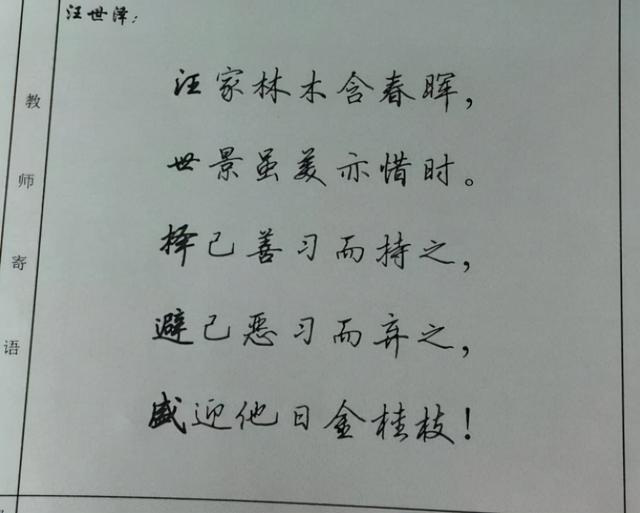 汪世泽：
教师寄语
汪家林木含春晖，
世景虽美亦惜时。
择己善习而持之，
避己恶习而弃之，
盛迎他日金桂枝！